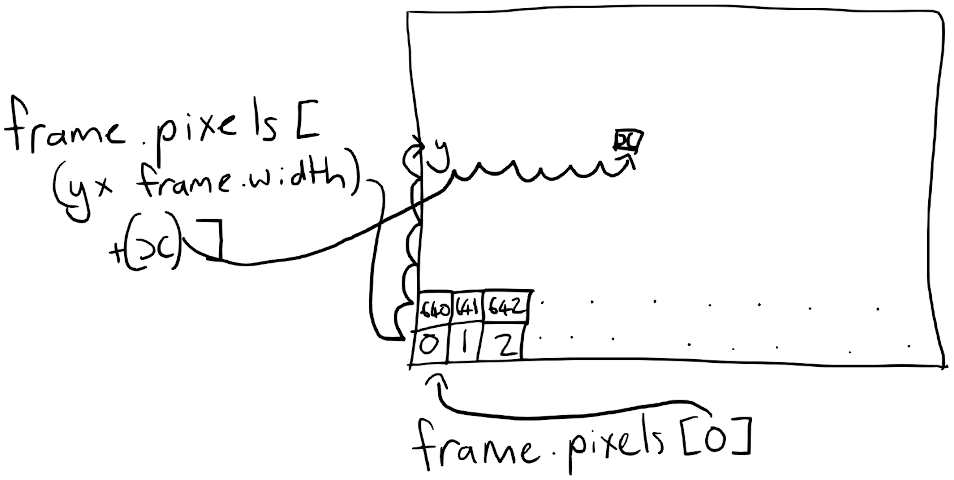 frame.pixels[
(y× frame.width)
+(x)]
y
x
640 641 642
0 1 2
frame.pixels[0]